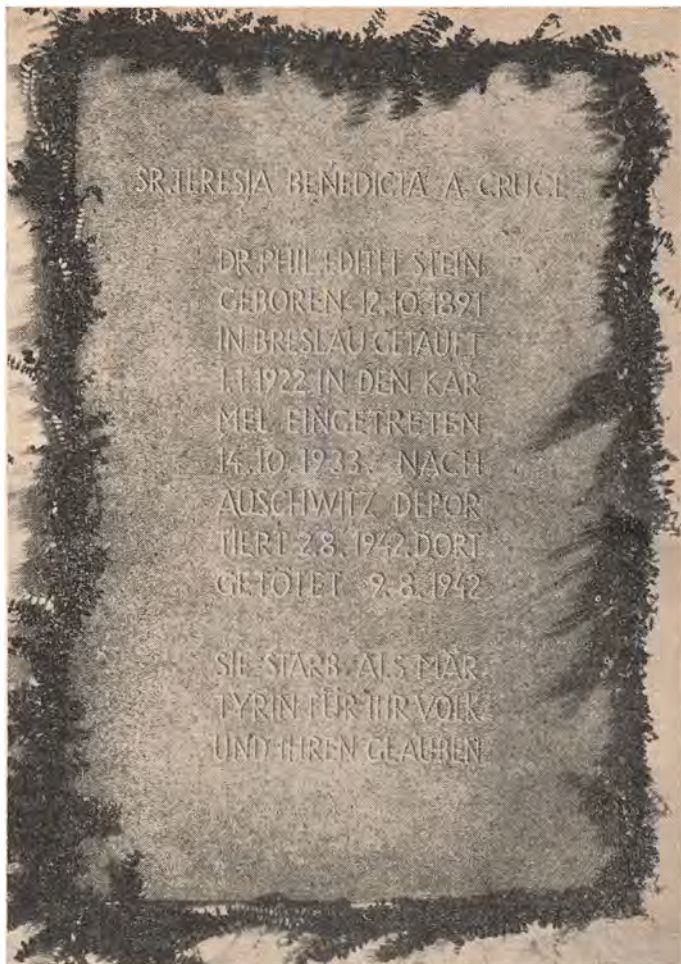 SR. TERESIA BENEDICTA A CRUCE
DR. PHIL. EDITH STEIN
GEBOREN 12.10.1891
IN BRESLAU GETAUFT
1.1.1922 IN DEN KAR
MEL EINGETRETEN
14.10.1933. NACH
AUSCHWITZ DEPOR
TIERT 2.8.1942. DORT
GETÖTET 9.8.1942
SIE STARB ALS MÄR
TYRIN FÜR IHR VOLK
UND IHREN GLAUBEN